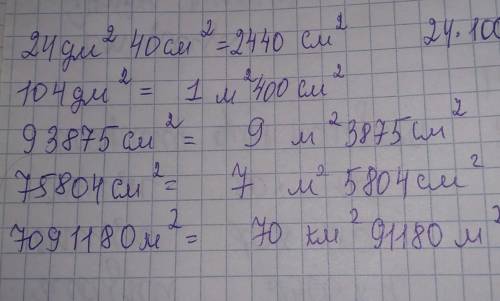 24 дм² 40 см² = 2440 см² 24·100
104 дм² = 1 м² 400 см²
93875 см² = 9 м² 3875 см²
75804 см² = 7 м² 5804 см²
7091180 м² = 70 км² 91180 м²